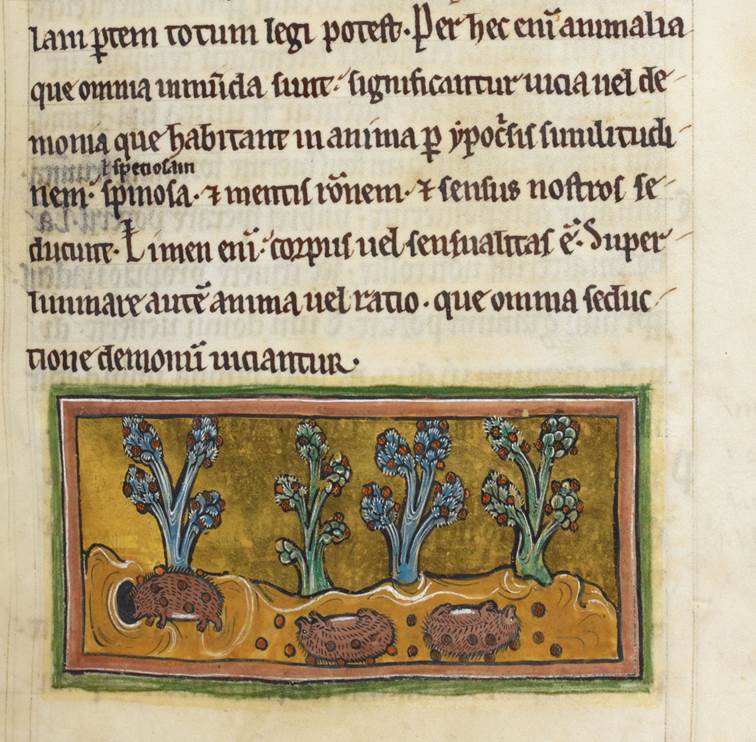 lam ꝑtem totum legi potest. Per hec enī animalia
que omnia inmūda sunt: significantur uicia uel de
monia que habitant in anima ꝑ ypoc̄sis similitudi
ł speciosam
nem: spinosa. ⁊ mentis rōnem. ⁊ sensus nostros se
ducunt. Limen enī: corpus uel sensualitas ē. Super
luminare autē anima uel ratio. que omnia seduc
tione demonū uiciantur.